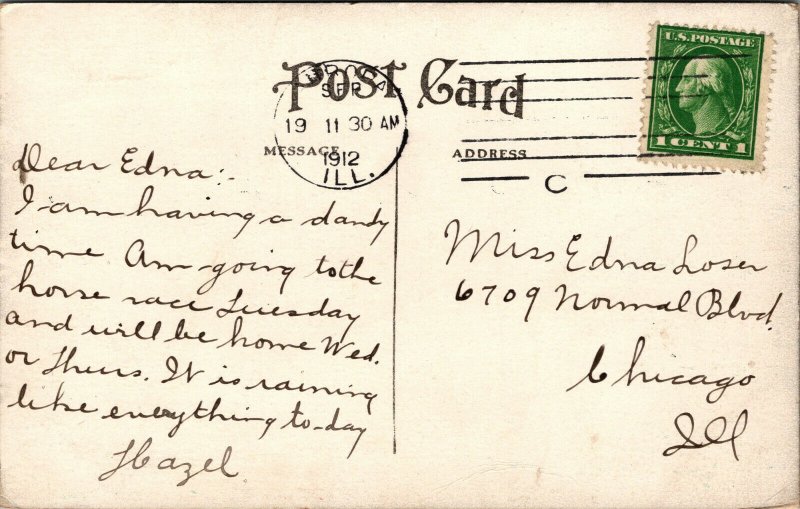 Post Card
U.S. POSTAGE
1 CENT 1
SEP
19 11 30 AM
1912
ILL.
MESSAGE
ADDRESS
C
Dear Edna:-
I am having a dandy
time. Am going to the
horse race Tuesday
and will be home Wed.
or Thurs. It is raining
like everything to-day
Hazel.
Miss Edna Loser
6709 Normal Blvd.
Chicago
Ill